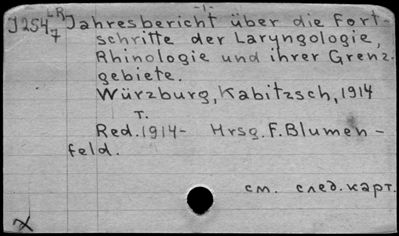 -1-
J254 LR/7 Jahresbericht über die Fort-
schritte der Laryngologie,
Rhinologie und ihrer Grenz-
gebiete.
Würzburg, Kabitzsch, 1914
T.
Red. 1914- Hrsg. F. Blumen-
feld.
см. след. карт.